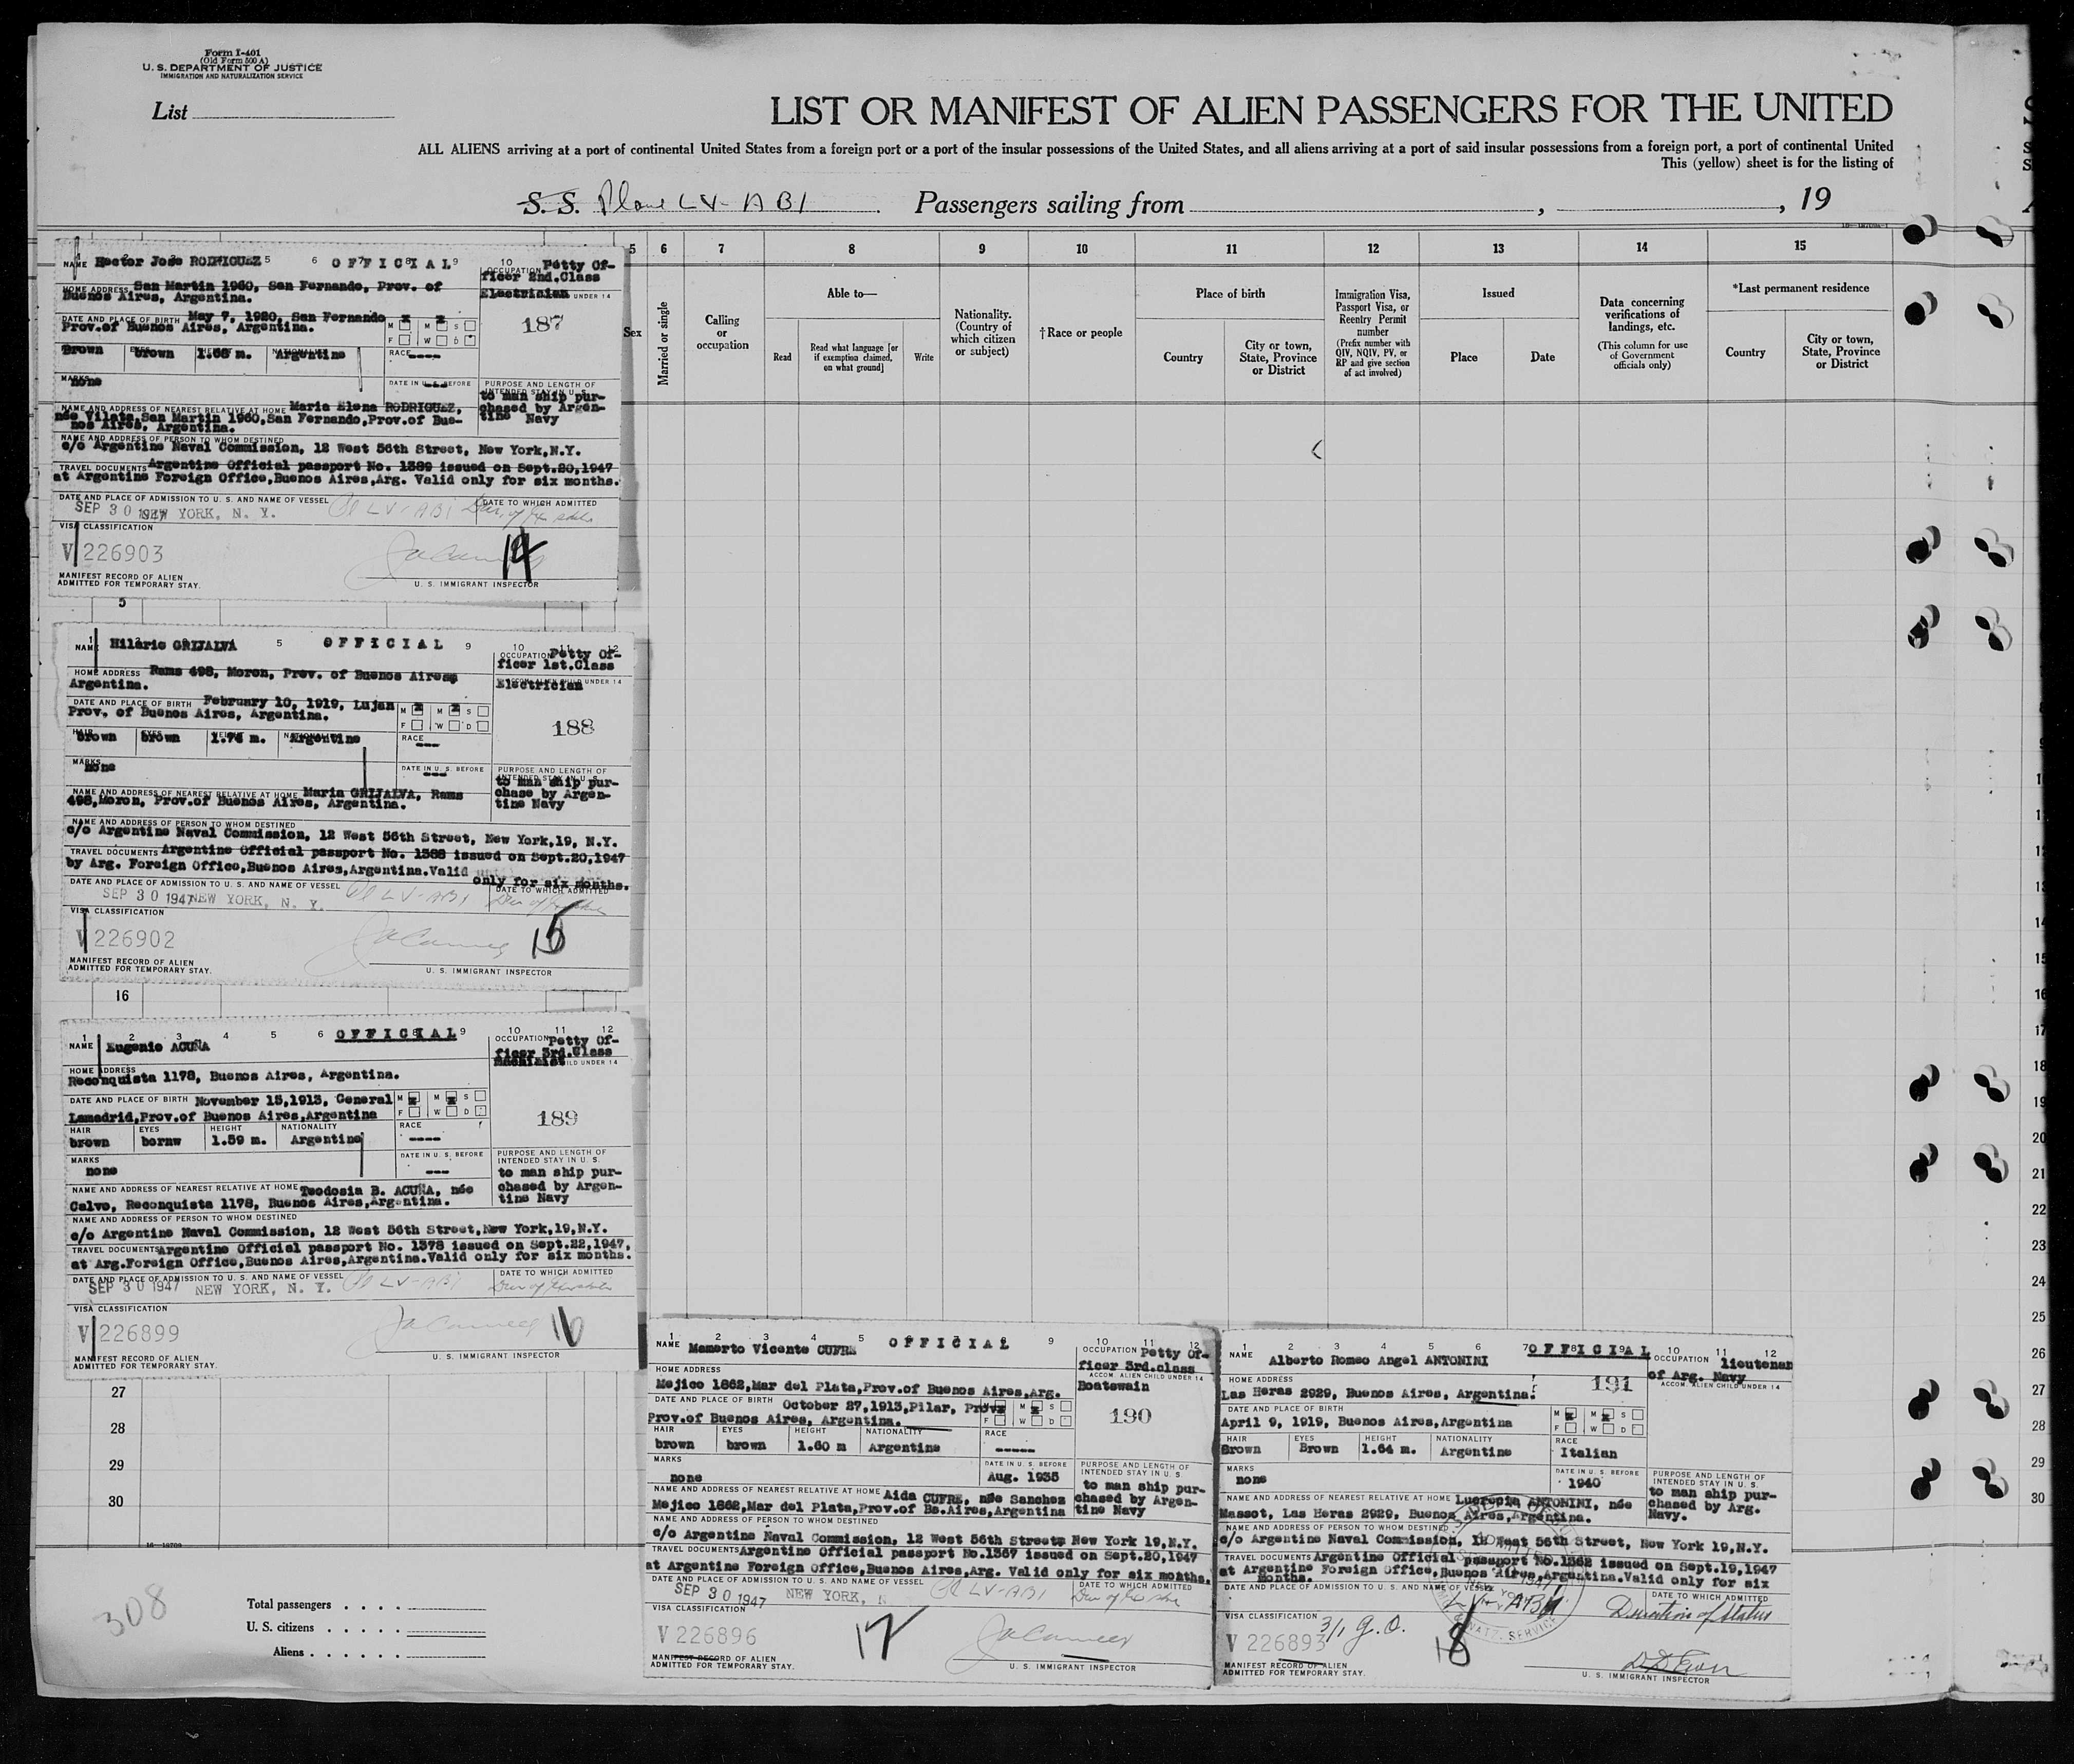 Form I-401
(Old Form 500 A)
U. S. DEPARTMENT OF JUSTICE
IMMIGRATION AND NATURALIZATION SERVICE
List
LIST OR MANIFEST OF ALIEN PASSENGERS FOR THE UNITED
ALL ALIENS arriving at a port of continental United States from a foreign port or a port of the insular possessions of the United States, and all aliens arriving at a port of said insular possessions from a foreign port, a port of continental United
This (yellow) sheet is for the listing of
S. S. Plane LV-ABI Passengers sailing from , , 19
5 6 7 8 9 10 11 12 13 14 15
Sex
Married or single
Calling or occupation
Able to—
Read
Read what language [or if exemption claimed, on what ground]
Write
Nationality. (Country of which citizen or subject)
†Race or people
Place of birth
Country
City or town, State, Province or District
Immigration Visa, Passport Visa, or Reentry Permit number
(Prefix number with QIV, NQIV, PV, or RP and give section of act involved)
Issued
Place
Date
Data concerning verifications of landings, etc.
(This column for use of Government officials only)
*Last permanent residence
Country
City or town, State, Province or District
NAME Hector Jose RODRIGUEZ 5 6 OFFICIAL 9 10
OCCUPATION Petty Officer 2nd.Class
Electrician UNDER 14
HOME ADDRESS San Martin 1960, San Fernando, Prov. of
Buenos Aires, Argentina.
DATE AND PLACE OF BIRTH May 7, 1920, San Fernando
Prov.of Buenos Aires, Argentina.
M M S
F W D
187
Brown brown 1.68 m. Argentine RACE ----
MARKS none
DATE IN U. S. BEFORE
PURPOSE AND LENGTH OF INTENDED STAY IN U. S.
to man ship purchased by Argentine Navy
NAME AND ADDRESS OF NEAREST RELATIVE AT HOME Maria Elena RODRIGUEZ,
née Vilata, San Martin 1960,San Fernando,Prov.of Buenos Aires, Argentina.
NAME AND ADDRESS OF PERSON TO WHOM DESTINED
c/o Argentine Naval Commission, 12 West 56th Street, New York,N.Y.
TRAVEL DOCUMENTS Argentine Official passport No. 1389 issued on Sept.20,1947
at Argentine Foreign Office,Buenos Aires,Arg. Valid only for six months.
DATE AND PLACE OF ADMISSION TO U. S. AND NAME OF VESSEL
DATE TO WHICH ADMITTED
SEP 30 1947 NEW YORK, N. Y. Pl LV-ABI Dur. of
VISA CLASSIFICATION
V 226903
14
MANIFEST RECORD OF ALIEN
ADMITTED FOR TEMPORARY STAY.
U. S. IMMIGRANT INSPECTOR
5
NAME Hilario GRIJALVA 5 OFFICIAL 9 10 12
OCCUPATION Petty Officer 1st.Class
Electrician UNDER 14
HOME ADDRESS Rams 498, Moron, Prov. of Buenos Aires,
Argentina.
DATE AND PLACE OF BIRTH February 10, 1919, Lujan
Prov. of Buenos Aires, Argentina.
M M S
F W D
188
brown brown 1.74 m. Argentine RACE ---
MARKS none
DATE IN U. S. BEFORE ---
PURPOSE AND LENGTH OF INTENDED STAY IN U. S.
to man ship purchase by Argentine Navy
NAME AND ADDRESS OF NEAREST RELATIVE AT HOME Maria GRIJALVA, Rams
498,Moron, Prov.of Buenos Aires, Argentina.
NAME AND ADDRESS OF PERSON TO WHOM DESTINED
c/o Argentine Naval Commission, 12 West 56th Street, New York,19, N.Y.
TRAVEL DOCUMENTS Argentine Official passport No. 1388 issued on Sept.20,1947
by Arg. Foreign Office,Buenos Aires,Argentina.Valid
only for six months.
DATE AND PLACE OF ADMISSION TO U. S. AND NAME OF VESSEL
DATE TO WHICH ADMITTED
SEP 30 1947 NEW YORK, N. Y. Pl LV-ABI Dur of
VISA CLASSIFICATION
V 226902
15
MANIFEST RECORD OF ALIEN
ADMITTED FOR TEMPORARY STAY.
U. S. IMMIGRANT INSPECTOR
16
1 2 3 4 5 6 OFFICIAL 9 10 11 12
NAME Eugenio ACUÑA
OCCUPATION Petty Officer 3rd.Class
Machinist CHILD UNDER 14
HOME ADDRESS
Reconquista 1178, Buenos Aires, Argentina.
DATE AND PLACE OF BIRTH November 15,1913, General
Lamadrid,Prov.of Buenos Aires,Argentina
M M S
F W D
189
HAIR EYES HEIGHT NATIONALITY RACE
brown bornw 1.59 m. Argentine ----
MARKS none
DATE IN U. S. BEFORE ---
PURPOSE AND LENGTH OF INTENDED STAY IN U. S.
to man ship purchased by Argentine Navy
NAME AND ADDRESS OF NEAREST RELATIVE AT HOME Teodosia B. ACUÑA, née
Calvo, Reconquista 1178, Buenos Aires,Argentina.
NAME AND ADDRESS OF PERSON TO WHOM DESTINED
c/o Argentine Naval Commission, 12 West 56th Street,New York,19,N.Y.
TRAVEL DOCUMENTS Argentine Official passport No. 1378 issued on Sept.22,1947,
at Arg.Foreign Office,Buenos Aires,Argentina.Valid only for six months.
DATE AND PLACE OF ADMISSION TO U. S. AND NAME OF VESSEL
DATE TO WHICH ADMITTED
SEP 30 1947 NEW YORK, N. Y. Pl LV-ABI Dur of
VISA CLASSIFICATION
V 226899
16
MANIFEST RECORD OF ALIEN
ADMITTED FOR TEMPORARY STAY.
U. S. IMMIGRANT INSPECTOR
27
28
29
30
16—18709
308
Total passengers . . . .
U. S. citizens . . . . .
Aliens . . . . . .
1 2 3 4 5 OFFICIAL 9 10 11 12
NAME Mamerto Vicente CUFRE
OCCUPATION Petty Officer 3rd.class
ACCOM. ALIEN CHILD UNDER 14
Boatswain
HOME ADDRESS
Mejico 1862,Mar del Plata,Prov.of Buenos Aires,Arg.
DATE AND PLACE OF BIRTH October 27,1913,Pilar, Prov.
Prov.of Buenos Aires, Argentina.
M M S
F W D
190
HAIR EYES HEIGHT NATIONALITY RACE
brown brown 1.60 m Argentine -----
MARKS none
DATE IN U. S. BEFORE Aug. 1935
PURPOSE AND LENGTH OF INTENDED STAY IN U. S.
to man ship purchased by Argentine Navy
NAME AND ADDRESS OF NEAREST RELATIVE AT HOME Aida CUFRE, née Sanchez
Mejico 1862,Mar del Plata,Prov.of Bs.Aires,Argentina
NAME AND ADDRESS OF PERSON TO WHOM DESTINED
c/o Argentine Naval Commission, 12 West 56th Street, New York 19,N.Y.
TRAVEL DOCUMENTS Argentine Official passport No.1367 issued on Sept.20,1947
at Argentine Foreign Office,Buenos Aires,Arg. Valid only for six months.
DATE AND PLACE OF ADMISSION TO U. S. AND NAME OF VESSEL
DATE TO WHICH ADMITTED
SEP 30 1947 NEW YORK, N Pl LV-ABI Dur of
VISA CLASSIFICATION
V 226896
17
MANIFEST RECORD OF ALIEN
ADMITTED FOR TEMPORARY STAY.
U. S. IMMIGRANT INSPECTOR
1 2 3 4 5 6 7 OFFICIAL 10 11 12
NAME Alberto Romeo Angel ANTONINI
OCCUPATION lieutenan
of Arg. Navy
ACCOM. ALIEN CHILD UNDER 14
HOME ADDRESS
Las Heras 2929, Buenos Aires, Argentina.
191
DATE AND PLACE OF BIRTH
April 9, 1919, Buenos Aires,Argentina
M M S
F W D
HAIR EYES HEIGHT NATIONALITY RACE
Brown Brown 1.64 m. Argentine Italian
MARKS none
DATE IN U. S. BEFORE 1940
PURPOSE AND LENGTH OF INTENDED STAY IN U. S.
to man ship purchased by Arg. Navy.
NAME AND ADDRESS OF NEAREST RELATIVE AT HOME Lucrecia ANTONINI, née
Massot, Las Heras 2929, Buenos Aires,Argentina.
NAME AND ADDRESS OF PERSON TO WHOM DESTINED
c/o Argentine Naval Commission, 12 West 56th Street, New York 19,N.Y.
TRAVEL DOCUMENTS Argentine Official passport No.1362 issued on Sept.19,1947
at Argentine Foreign Office,Buenos Aires,Argentina.Valid only for six
months.
DATE AND PLACE OF ADMISSION TO U. S. AND NAME OF VESSEL
DATE TO WHICH ADMITTED
Duration of Status
VISA CLASSIFICATION 3/1 G.O.
V 226893
18
MANIFEST RECORD OF ALIEN
ADMITTED FOR TEMPORARY STAY.
U. S. IMMIGRANT INSPECTOR
14
15
16
17
18
19
20
21
22
23
24
25
26
27
28
29
30